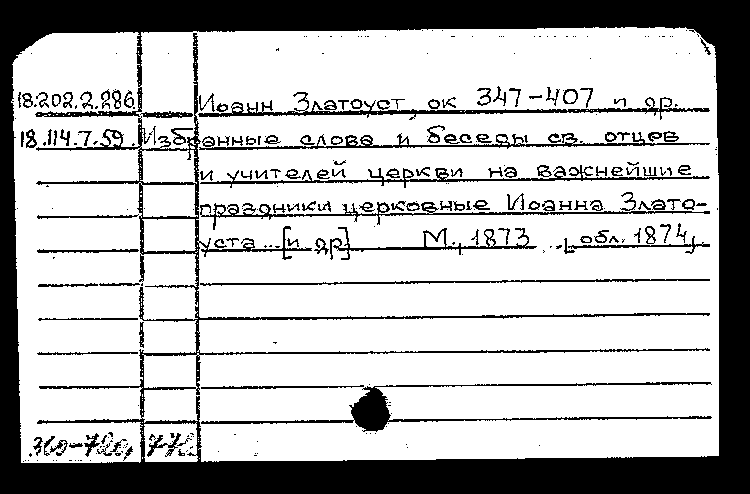 18.202.2.286 Иоанн Златоуст, ок 347-407 и др.
18.114.7.59. Избранные слова и беседы св. отцев
и учителей церкви на важнейшие
праздники церковные Иоанна Злато-
уста... [и др] М., 1873 ... [обл. 1874]